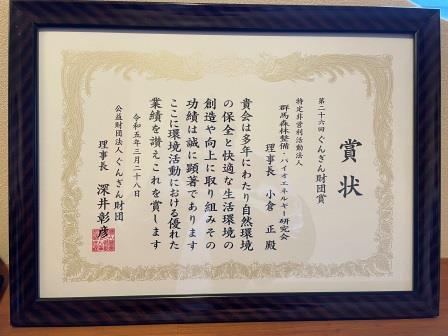 賞状
第二十六回ぐんぎん財団賞
特定非営利活動法人
群馬森林整備・バイオエネルギー研究会
理事長 小倉 正 殿
貴会は多年にわたり自然環境
の保全と快適な生活環境の
創造や向上に取り組みその
功績は誠に顕著であります
ここに環境活動における優れた
業績を讃えこれを賞します
令和五年三月二十八日
公益財団法人ぐんぎん財団
理事長 深井彰彦